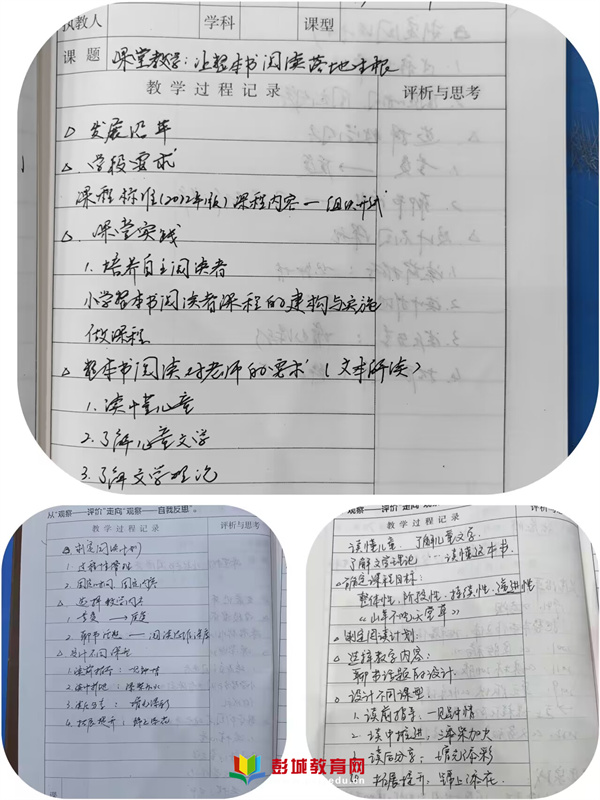 执教人 学科 课型
课题 课堂教学：让整本书阅读落地生根
教学过程记录 评析与思考
△发展沿革
△学段要求
课程标准（2022年版）课程内容—组织形式
△课堂实践
1.培养自主阅读者
小学整本书阅读者课程的建构与实施
做课程
△整本书阅读对老师的要求（文本研读）
1.读懂儿童
2.了解儿童文学
3.了解文学理论
从“观察——评价”走向“观察——自我反思”。
教学过程记录 评析与思考
△制定阅读计划
1.过程性
2.固定时间，固定
△选择教学内容
1.
2.聊书话题——阅读
△设计不同课型
1.读前指导：一见钟情
2.读中推进：添柴加火
3.读后分享：增光添彩
4.拓展提升：锦上添花
观察——评价”走向“观
教学过程记录 评析与
读懂儿童，了解儿童文学
了解文学理论 读懂这本书
确定课程目标：
整体性，阶段性，持续性，递进性
《山羊不吃天堂草》
制定阅读计划：
△选择教学内容：
聊书话题的设计
◇设计不同课型
1.读前指导：一见钟情
2.读中推进：添柴加火
3.读后分享：增光添彩
拓展提升：锦上添花
彭城教育网